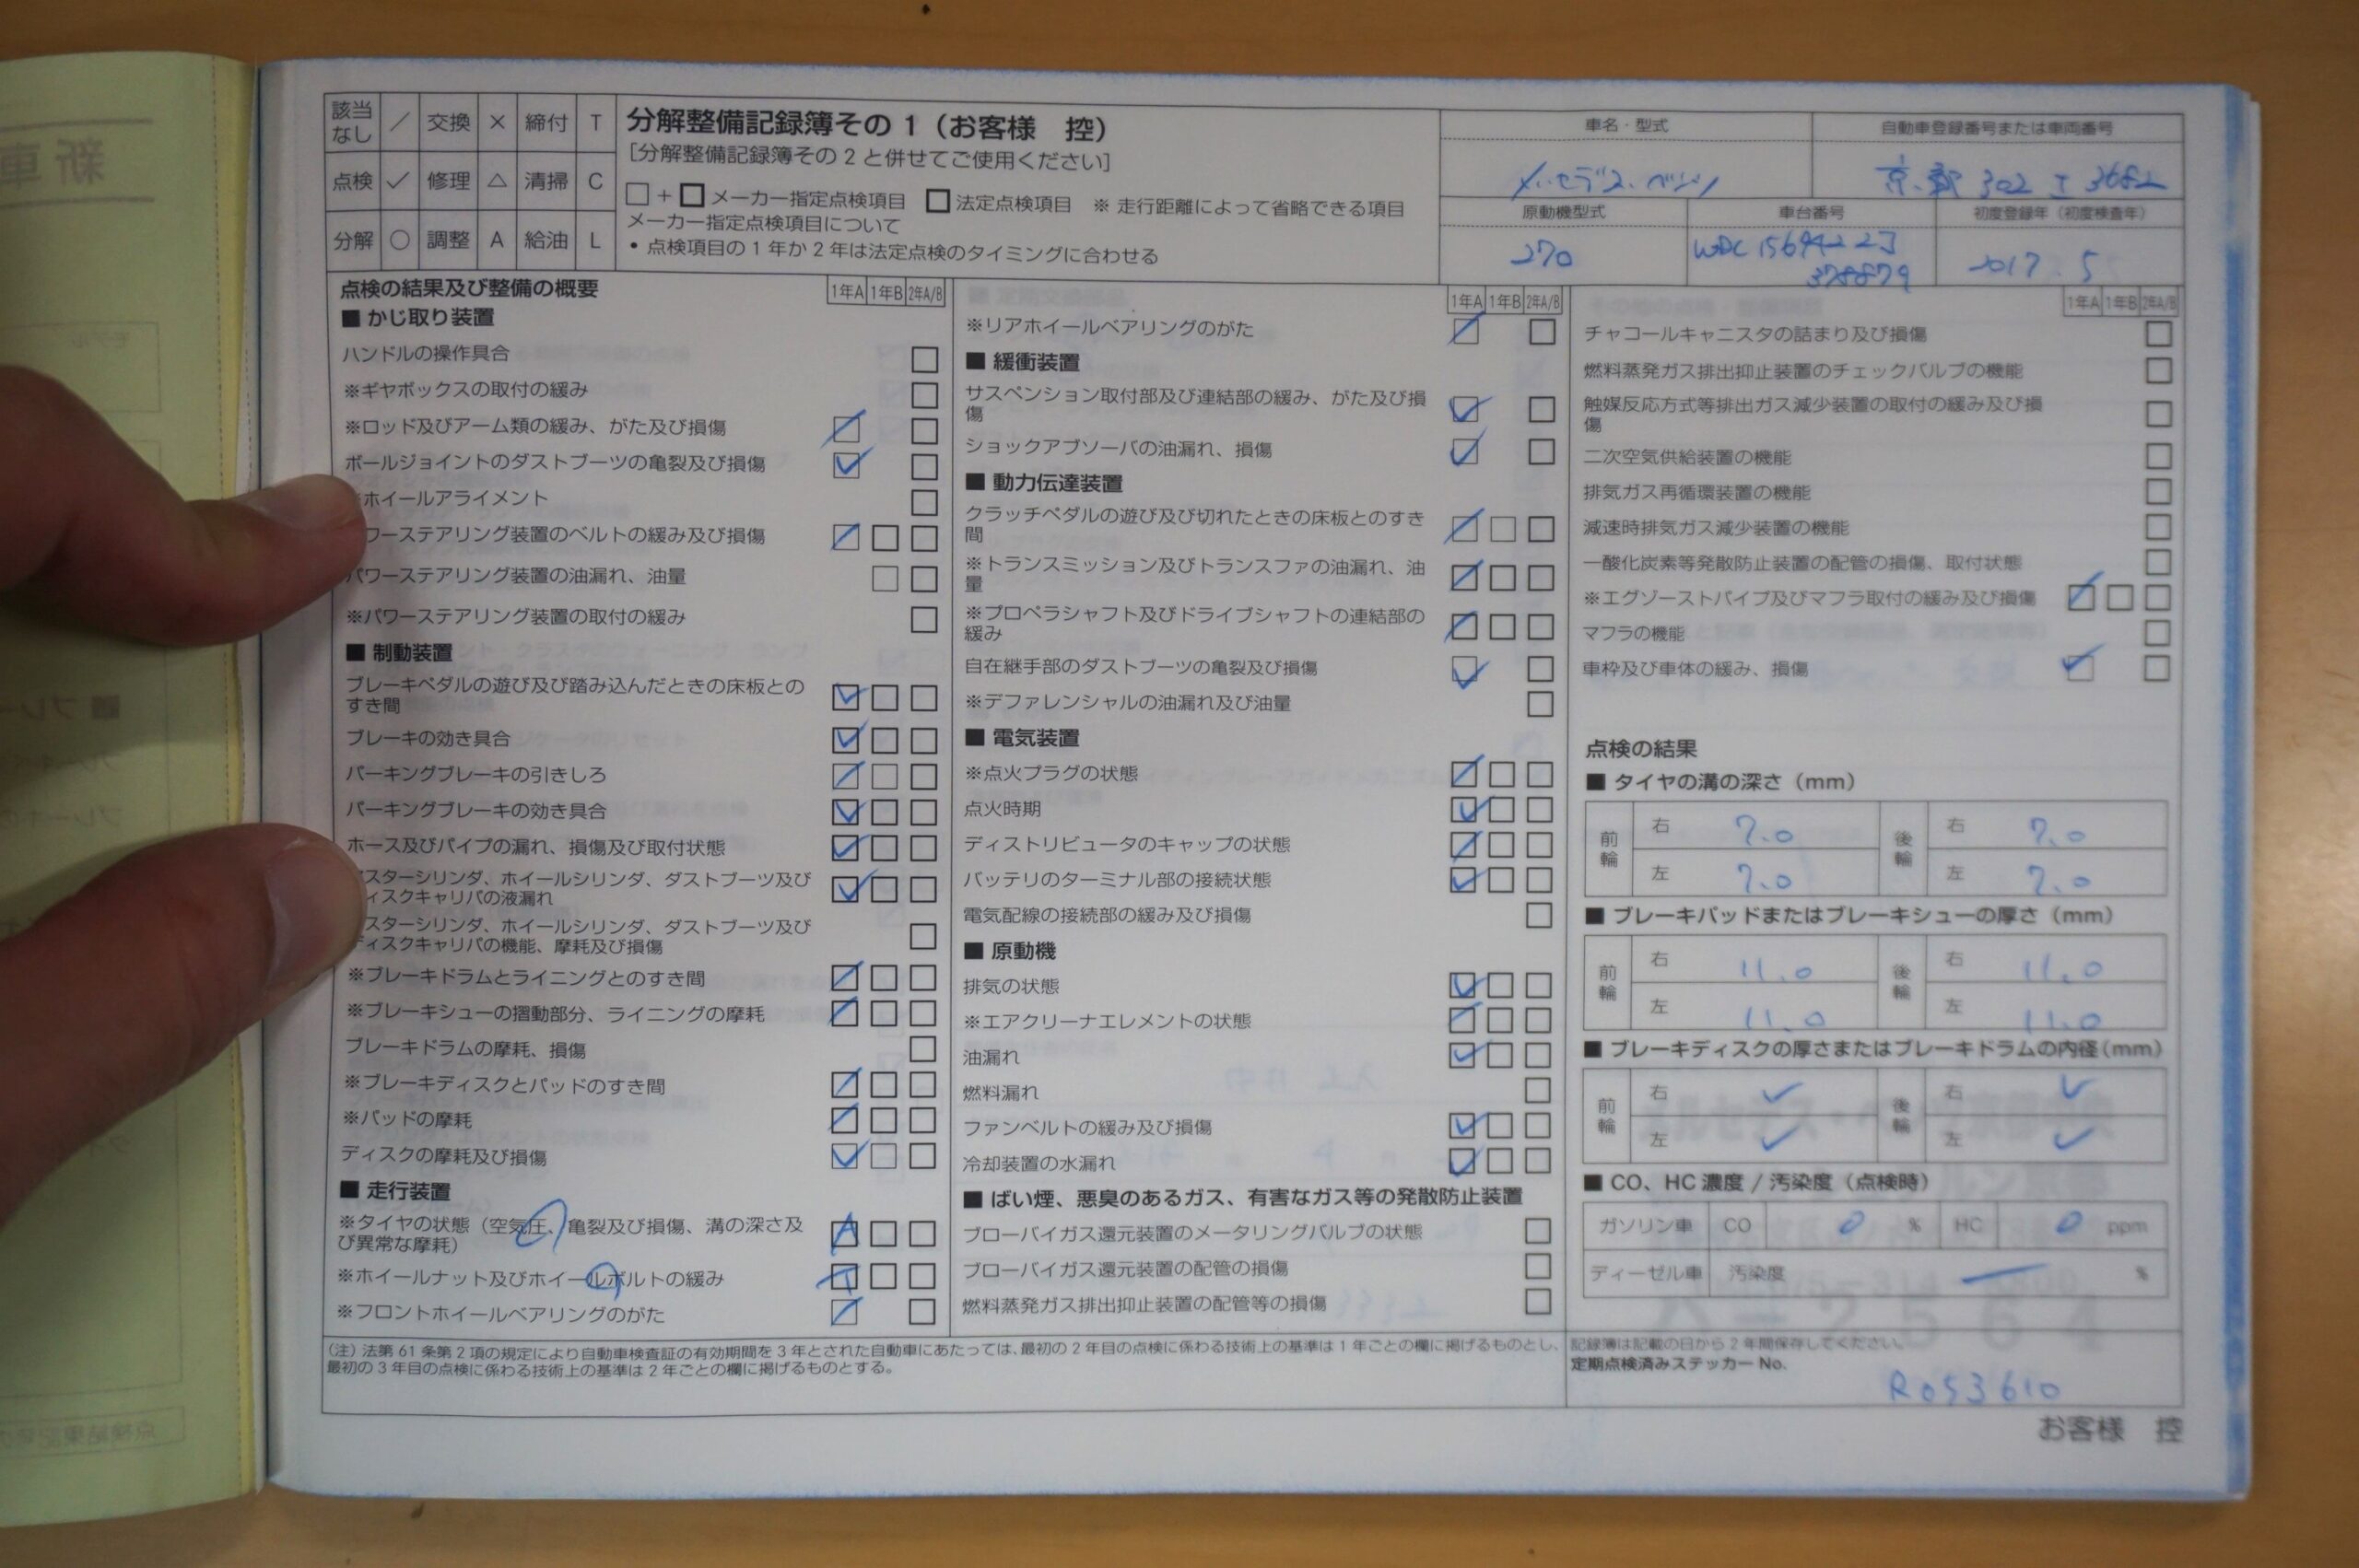 該当なし ／ 交換 × 締付 T
点検 ✓ 修理 △ 清掃 C
分解 ○ 調整 A 給油 L
分解整備記録簿その1（お客様　控）
［分解整備記録簿その2と併せてご使用ください］
□＋□メーカー指定点検項目 □法定点検項目 ※走行距離によって省略できる項目
メーカー指定点検項目について
• 点検項目の1年か2年は法定点検のタイミングに合わせる
車名・型式 自動車登録番号または車両番号
メルセデス・ベンツ 京都 302 3682
原動機型式 車台番号 初度登録年（初度検査年）
270 2017.5
378879
点検の結果及び整備の概要 1年A 1年B 2年A/B
■ かじ取り装置
ハンドルの操作具合
※ギヤボックスの取付の緩み
※ロッド及びアーム類の緩み、がた及び損傷
ボールジョイントのダストブーツの亀裂及び損傷
ホイールアライメント
ワーステアリング装置のベルトの緩み及び損傷
パワーステアリング装置の油漏れ、油量
※パワーステアリング装置の取付の緩み
■ 制動装置
ブレーキペダルの遊び及び踏み込んだときの床板との
すき間
ブレーキの効き具合
パーキングブレーキの引きしろ
パーキングブレーキの効き具合
ホース及びパイプの漏れ、損傷及び取付状態
スターシリンダ、ホイールシリンダ、ダストブーツ及び
ィスクキャリパの液漏れ
スターシリンダ、ホイールシリンダ、ダストブーツ及び
ディスクキャリパの機能、摩耗及び損傷
※ブレーキドラムとライニングとのすき間
※ブレーキシューの摺動部分、ライニングの摩耗
ブレーキドラムの摩耗、損傷
※ブレーキディスクとパッドのすき間
※パッドの摩耗
ディスクの摩耗及び損傷
■ 走行装置
※タイヤの状態（空気圧、亀裂及び損傷、溝の深さ及 A
び異常な摩耗）
※ホイールナット及びホイールボルトの緩み T
※フロントホイールベアリングのがた
1年A 1年B 2年A/B
※リアホイールベアリングのがた
■ 緩衝装置
サスペンション取付部及び連結部の緩み、がた及び損
傷
ショックアブソーバの油漏れ、損傷
■ 動力伝達装置
クラッチペダルの遊び及び切れたときの床板とのすき
間
※トランスミッション及びトランスファの油漏れ、油
量
※プロペラシャフト及びドライブシャフトの連結部の
緩み
自在継手部のダストブーツの亀裂及び損傷
※デファレンシャルの油漏れ及び油量
■ 電気装置
※点火プラグの状態
点火時期
ディストリビュータのキャップの状態
バッテリのターミナル部の接続状態
電気配線の接続部の緩み及び損傷
■ 原動機
排気の状態
※エアクリーナエレメントの状態
油漏れ
燃料漏れ
ファンベルトの緩み及び損傷
冷却装置の水漏れ
■ ばい煙、悪臭のあるガス、有害なガス等の発散防止装置
ブローバイガス還元装置のメータリングバルブの状態
ブローバイガス還元装置の配管の損傷
燃料蒸発ガス排出抑止装置の配管等の損傷
1年A 1年B 2年A/B
チャコールキャニスタの詰まり及び損傷
燃料蒸発ガス排出抑止装置のチェックバルブの機能
触媒反応方式等排出ガス減少装置の取付の緩み及び損
傷
二次空気供給装置の機能
排気ガス再循環装置の機能
減速時排気ガス減少装置の機能
一酸化炭素等発散防止装置の配管の損傷、取付状態
※エグゾーストパイプ及びマフラ取付の緩み及び損傷
マフラの機能
車枠及び車体の緩み、損傷
点検の結果
■ タイヤの溝の深さ（mm）
前輪 右 7.0 後輪 右 7.0
左 7.0 左 7.0
■ ブレーキパッドまたはブレーキシューの厚さ（mm）
前輪 右 11.0 後輪 右 11.0
左 11.0 左 11.0
■ ブレーキディスクの厚さまたはブレーキドラムの内径（mm）
前輪 右 ✓ 後輪 右 ✓
左 ✓ 左 ✓
■ CO、HC 濃度 / 汚染度（点検時）
ガソリン車 CO 0 % HC 0 ppm
ディーゼル車 汚染度 %
（注）法第61条第2項の規定により自動車検査証の有効期間を3年とされた自動車にあたっては、最初の2年目の点検に係わる技術上の基準は1年ごとの欄に掲げるものとし、
最初の3年目の点検に係わる技術上の基準は2年ごとの欄に掲げるものとする。
記録簿は記載の日から2年間保存してください。
定期点検済みステッカー No.
R053610
お客様　控